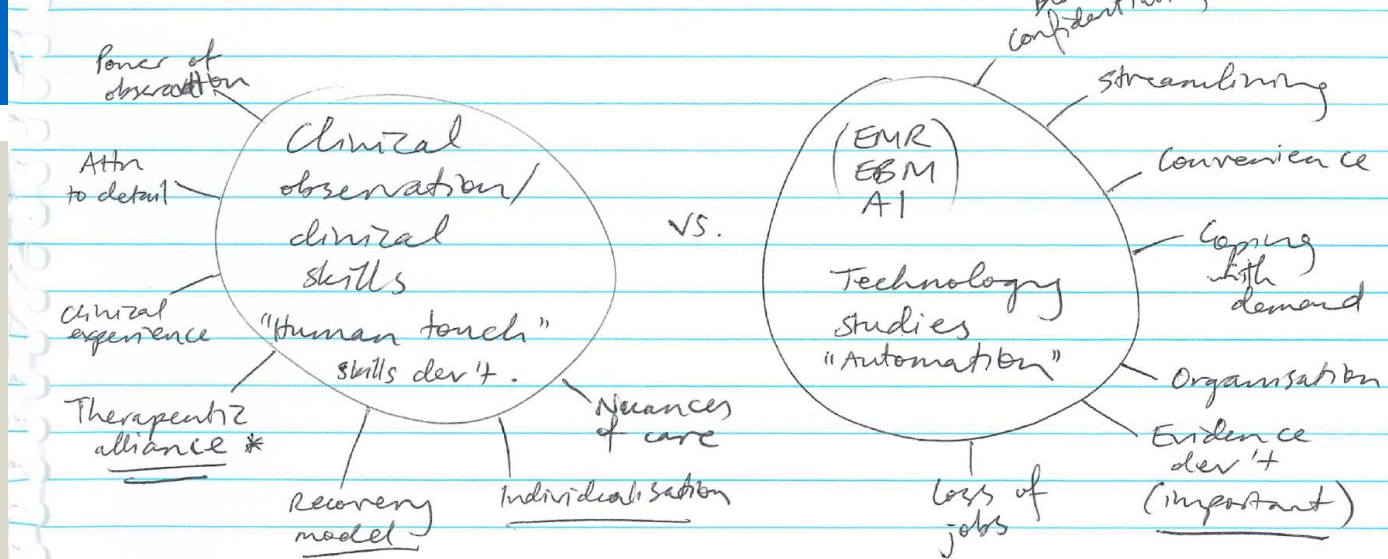 confidentiality
Power of
observation
Attn
to detail
Clinical
experience
Therapeutic
alliance *
Recovery
model
Individualisation
Nuances
of care
Clinical
observation/
clinical
skills
"Human touch"
skills dev't.
vs.
(EMR
EBM
AI)
Technology
studies
"Automation"
streamlining
Convenience
Coping
with
demand
Organisation
Evidence
dev't
(important)
Loss of
jobs